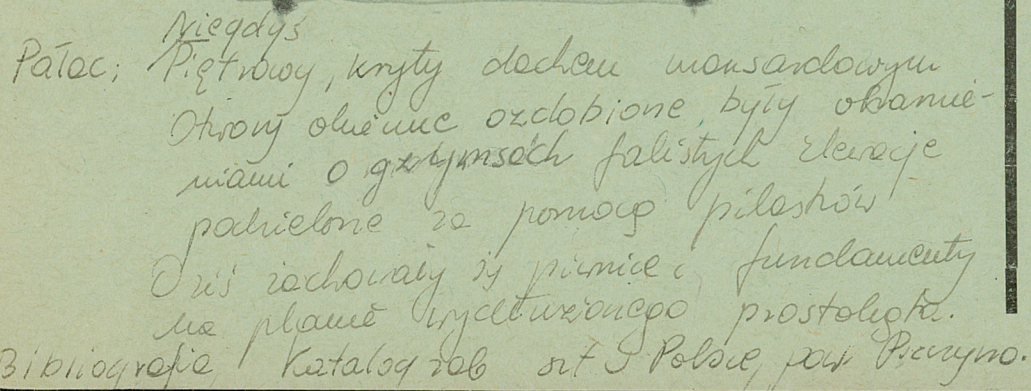 Niegdyś
Pałac; Piętrowy, kryty dachem mansardowym
Otwory okienne ozdobione były obramie-
niami o gzymsach falistych elewacje
podzielone za pomocą pilastrów
Dziś zachowały się piwnice i fundamenty
na planie wydłużonego prostokąta.
Bibliografia Katalog zab szt w Polsce, pow Pszczyna.